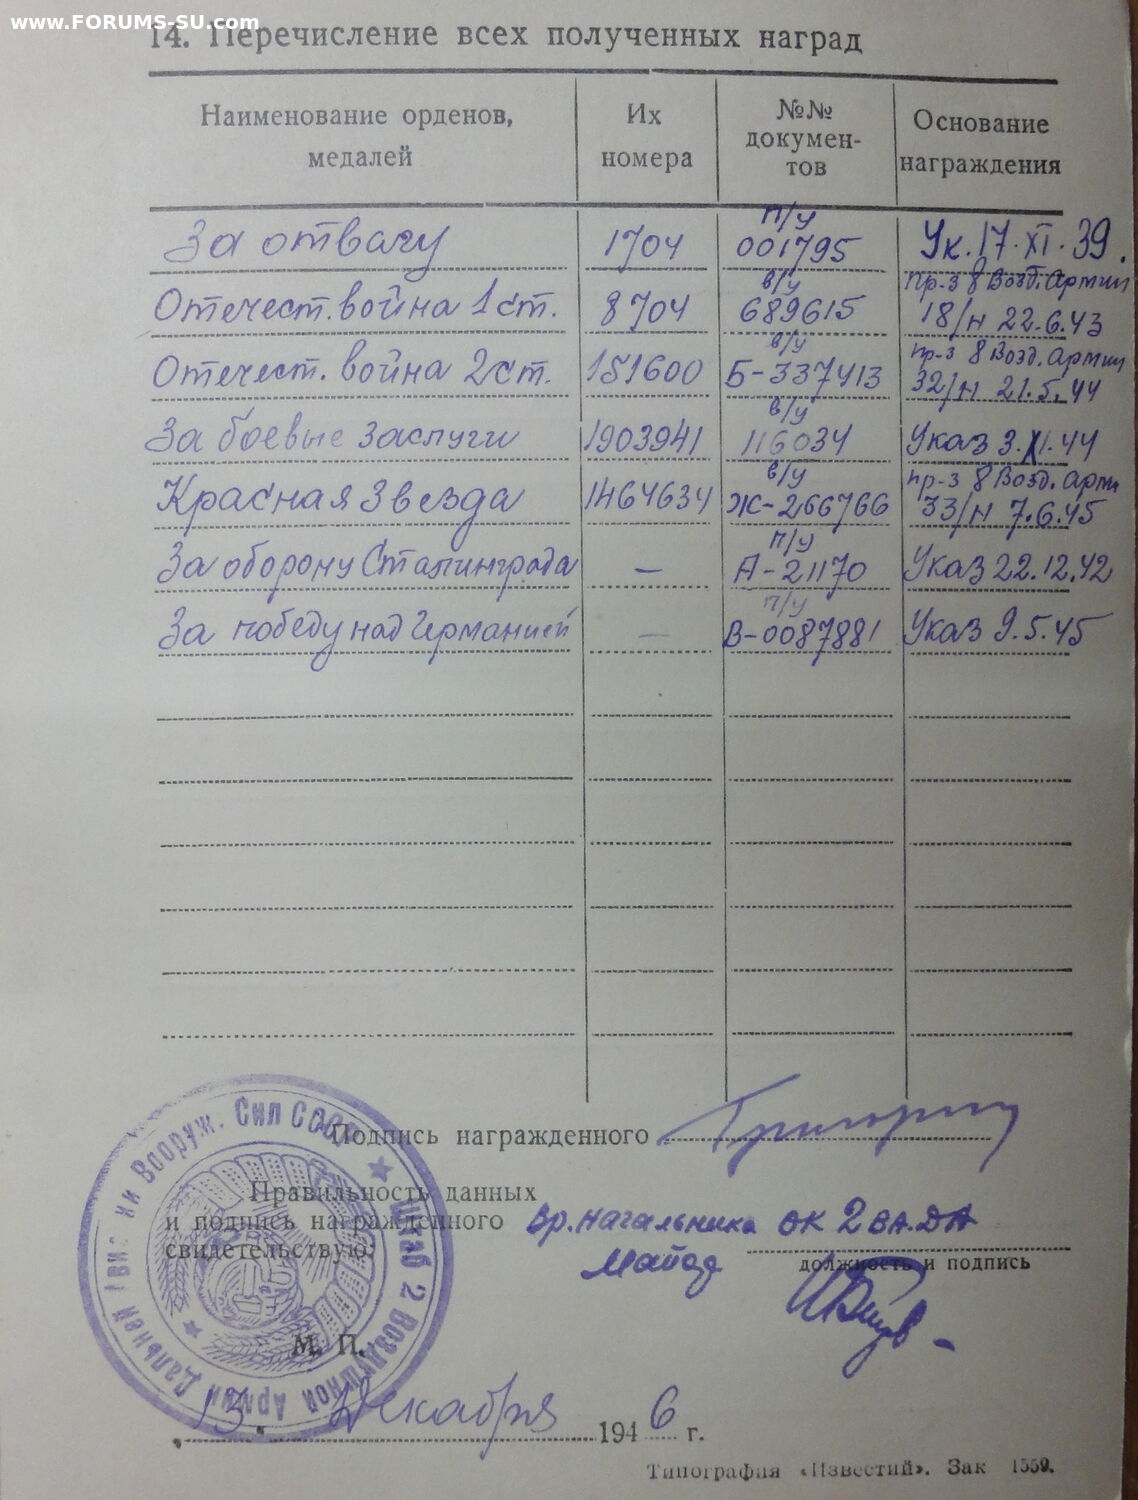 www.FORUMS-SU.com
14. Перечисление всех полученных наград
Наименование орденов, медалей
Их номера
№№ докумен-тов
Основание награждения
За отвагу 1704 п/у 001795 Ук. 17.XI.39.
Отечест. война 1 ст. 8704 в/у 689615 пр-з 8 Возд. Армии 18/н 22.6.43
Отечест. война 2 ст. 151600 в/у Б-337413 пр-з 8 Возд. Армии 32/н 21.5.44
За боевые заслуги 1903941 в/у 116034 Указ 3.XI.44
Красная Звезда 1464634 в/у Ж-266766 пр-з 8 Возд. Арми 33/н 7.6.45
За оборону Сталинграда — п/у А-21170 Указ 22.12.42
За победу над Германией — п/у В-0087881 Указ 9.5.45
Подпись награжденного
Правильность данных
и подпись награжденного
свидетельствую:
Вр. начальника ОК 2 ВА. ДА
Майор
должность и подпись
М. П.
Штаб 2 Воздушной Армии Дальней Авиации Вооруж. Сил СССР
13 Декабря 1946 г.
Типография «Известий». Зак 1559.